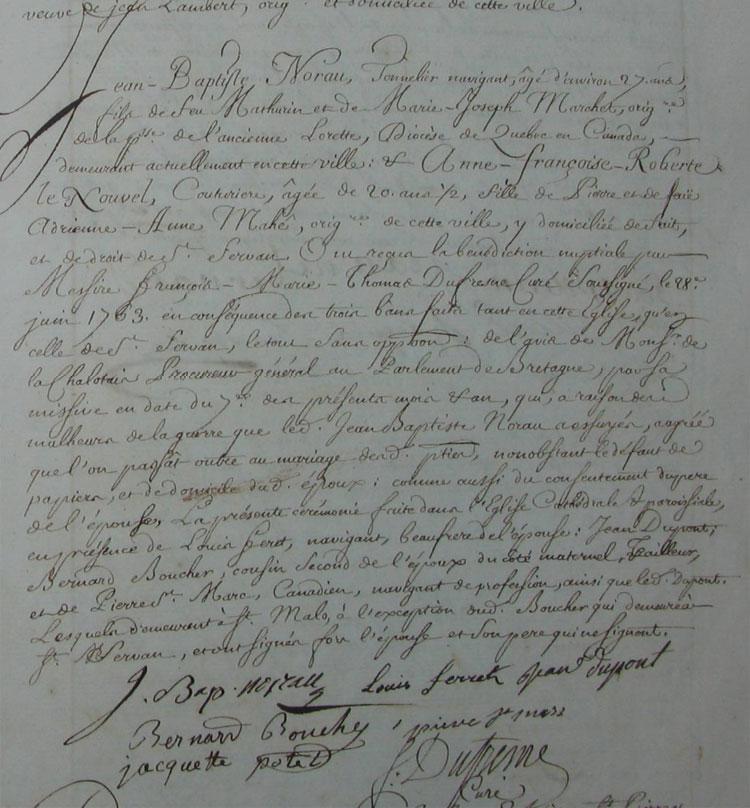 veuve de jean Lambert, orig. et domiciliée de cette ville.
Jean-Baptiste Norau, Tonnelier navigant, âgé d'environ 27. ans,
fils de feu Mathurin et de Marie-Joseph Marchet, orig.re
de la p.sse de l'ancienne Lorette, Diocèse de Quebec en Canada,
demeurant actuellement en cette ville: & Anne-françoise-Roberte
le Nouvel, Couturiere, âgée de 20. ans 1/2, fille de Pierre et de feüe
Adrienne-Anne Mahé, orig.re de cette ville, y domiciliée de fait,
et de droit de S.t Servan. Ont reçu la bénédiction nuptiale par
Messire François-Marie-Thomas Dufresne Curé Soussigné, le 28.e
juin 1763. en conséquence des trois bans faits tant en cette Eglise, qu'en
celle de S.t Servan, le tout sans oppôon: de l'avis de Mons.r de
la Chalotais Procureur général au Parlement de Bretagne, par sa
missive en date du 7.e des présents mois & an, qui, a raison des
malheurs de la guerre que led. Jean Baptiste Norau a essuyés, a agréé
que l'on passât outre au mariage desd. pties, nonobstant le défaut de
papiers, et de domicile dud. époux: comme aussi du consentement du pere
de l'épouse, La présente cérémonie faite dans l'Eglise Cathédrale & paroissiale,
en présence de Louis feret, navigant, beaufrere de l'épouse: Jean Dupont;
Bernard Boucher, cousin second de l'époux du côté maternel, Tailleur,
et de Pierre S.t Marc, Canadien, navigant de profession, ainsi que led. Dupont.
Lesquels demeurent à S.t Malo, à l'exception dud. Boucher qui demeure à
S.t Servan, et ont signés fors l'épouse et son pere qui ne signent.
J. Bap. norau Louis ferret jean dupont
Bernard Bouché pierre st marc
jacquette potel f. Dufresne
Curé